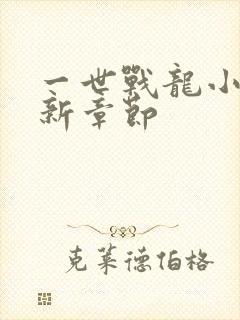 一世戰龍小
新章節
克萊德伯格